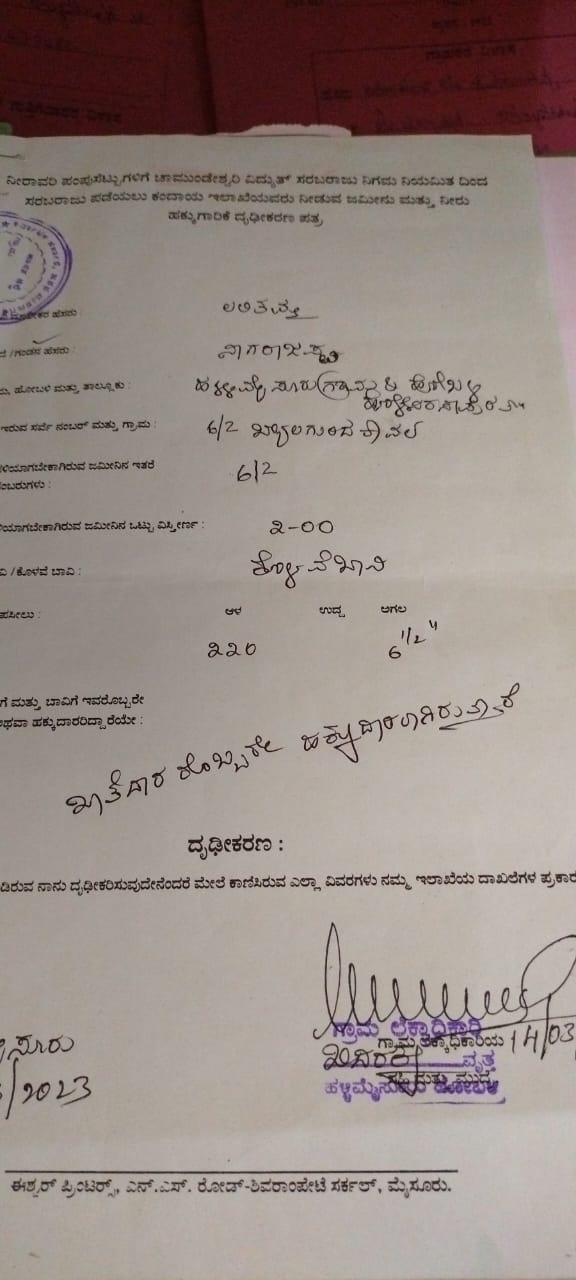 ನೀರಾವರಿ ಪಂಪುಸೆಟ್ಟುಗಳಿಗೆ ಚಾಮುಂಡೇಶ್ವರಿ ವಿದ್ಯುತ್ ಸರಬರಾಜು ನಿಗಮ ನಿಯಮಿತ ದಿಂದ
ಸರಬರಾಜು ಪಡೆಯಲು ಕಂದಾಯ ಇಲಾಖೆಯವರು ನೀಡುವ ಜಮೀನು ಮತ್ತು ನೀರು
ಹಕ್ಕುಗಾರಿಕೆ ದೃಢೀಕರಣ ಪತ್ರ
ಹೆಸರು : ಲಲಿತಮ್ಮ
/ಗಂಡನ ಹೆಸರು : ನಾಗರಾಜಶೆಟ್ಟಿ
ಹೋಬಳಿ ಮತ್ತು ತಾಲ್ಲೂಕು : ಹಳ್ಳಿಮೈಸೂರು ಗ್ರಾಮ & ಹೋಬಳಿ
ಇರುವ ಸರ್ವೆ ನಂಬರ್ ಮತ್ತು ಗ್ರಾಮ : 6/2 ಕಾವಲು
ಳಿಯಾಗಬೇಕಾಗಿರುವ ಜಮೀನಿನ ಇತರೆ
ಂಬರುಗಳು : 6/2
ಯಾಗಬೇಕಾಗಿರುವ ಜಮೀನಿನ ಒಟ್ಟು ವಿಸ್ತೀರ್ಣ : ೨-೦೦
ವಿ /ಕೊಳವೆ ಬಾವಿ : ಕೊಳವೆಬಾವಿ
ಪಸೀಲು : ಆಳ ಉದ್ದ ಅಗಲ
೨೨೦ 6 1/2"
ಗೆ ಮತ್ತು ಬಾವಿಗೆ ಇವರೊಬ್ಬರೇ
ಥವಾ ಹಕ್ಕುದಾರರಿದ್ದಾರೆಯೇ :
ಖಾತೆದಾರರೊಬ್ಬರೇ ಹಕ್ಕುದಾರರಾಗಿರುತ್ತಾರೆ
ದೃಢೀಕರಣ :
ಡಿರುವ ನಾನು ದೃಢೀಕರಿಸುವುದೇನೆಂದರೆ ಮೇಲೆ ಕಾಣಿಸಿರುವ ಎಲ್ಲಾ ವಿವರಗಳು ನಮ್ಮ ಇಲಾಖೆಯ ದಾಖಲೆಗಳ ಪ್ರಕಾರ
ಗ್ರಾಮ ಲೆಕ್ಕಾಧಿಕಾರಿ
ಗ್ರಾಮ ಲೆಕ್ಕಾಧಿಕಾರಿಯ 14/03/
ಸೂರು ವೃತ್ತ
/2023 ಹಳ್ಳಿಮೈಸೂರು ಹೋಬಳಿ
ಈಶ್ವರ್ ಪ್ರಿಂಟರ್ಸ್, ಎನ್.ಎಸ್. ರೋಡ್-ಶಿವರಾಂಪೇಟೆ ಸರ್ಕಲ್, ಮೈಸೂರು.